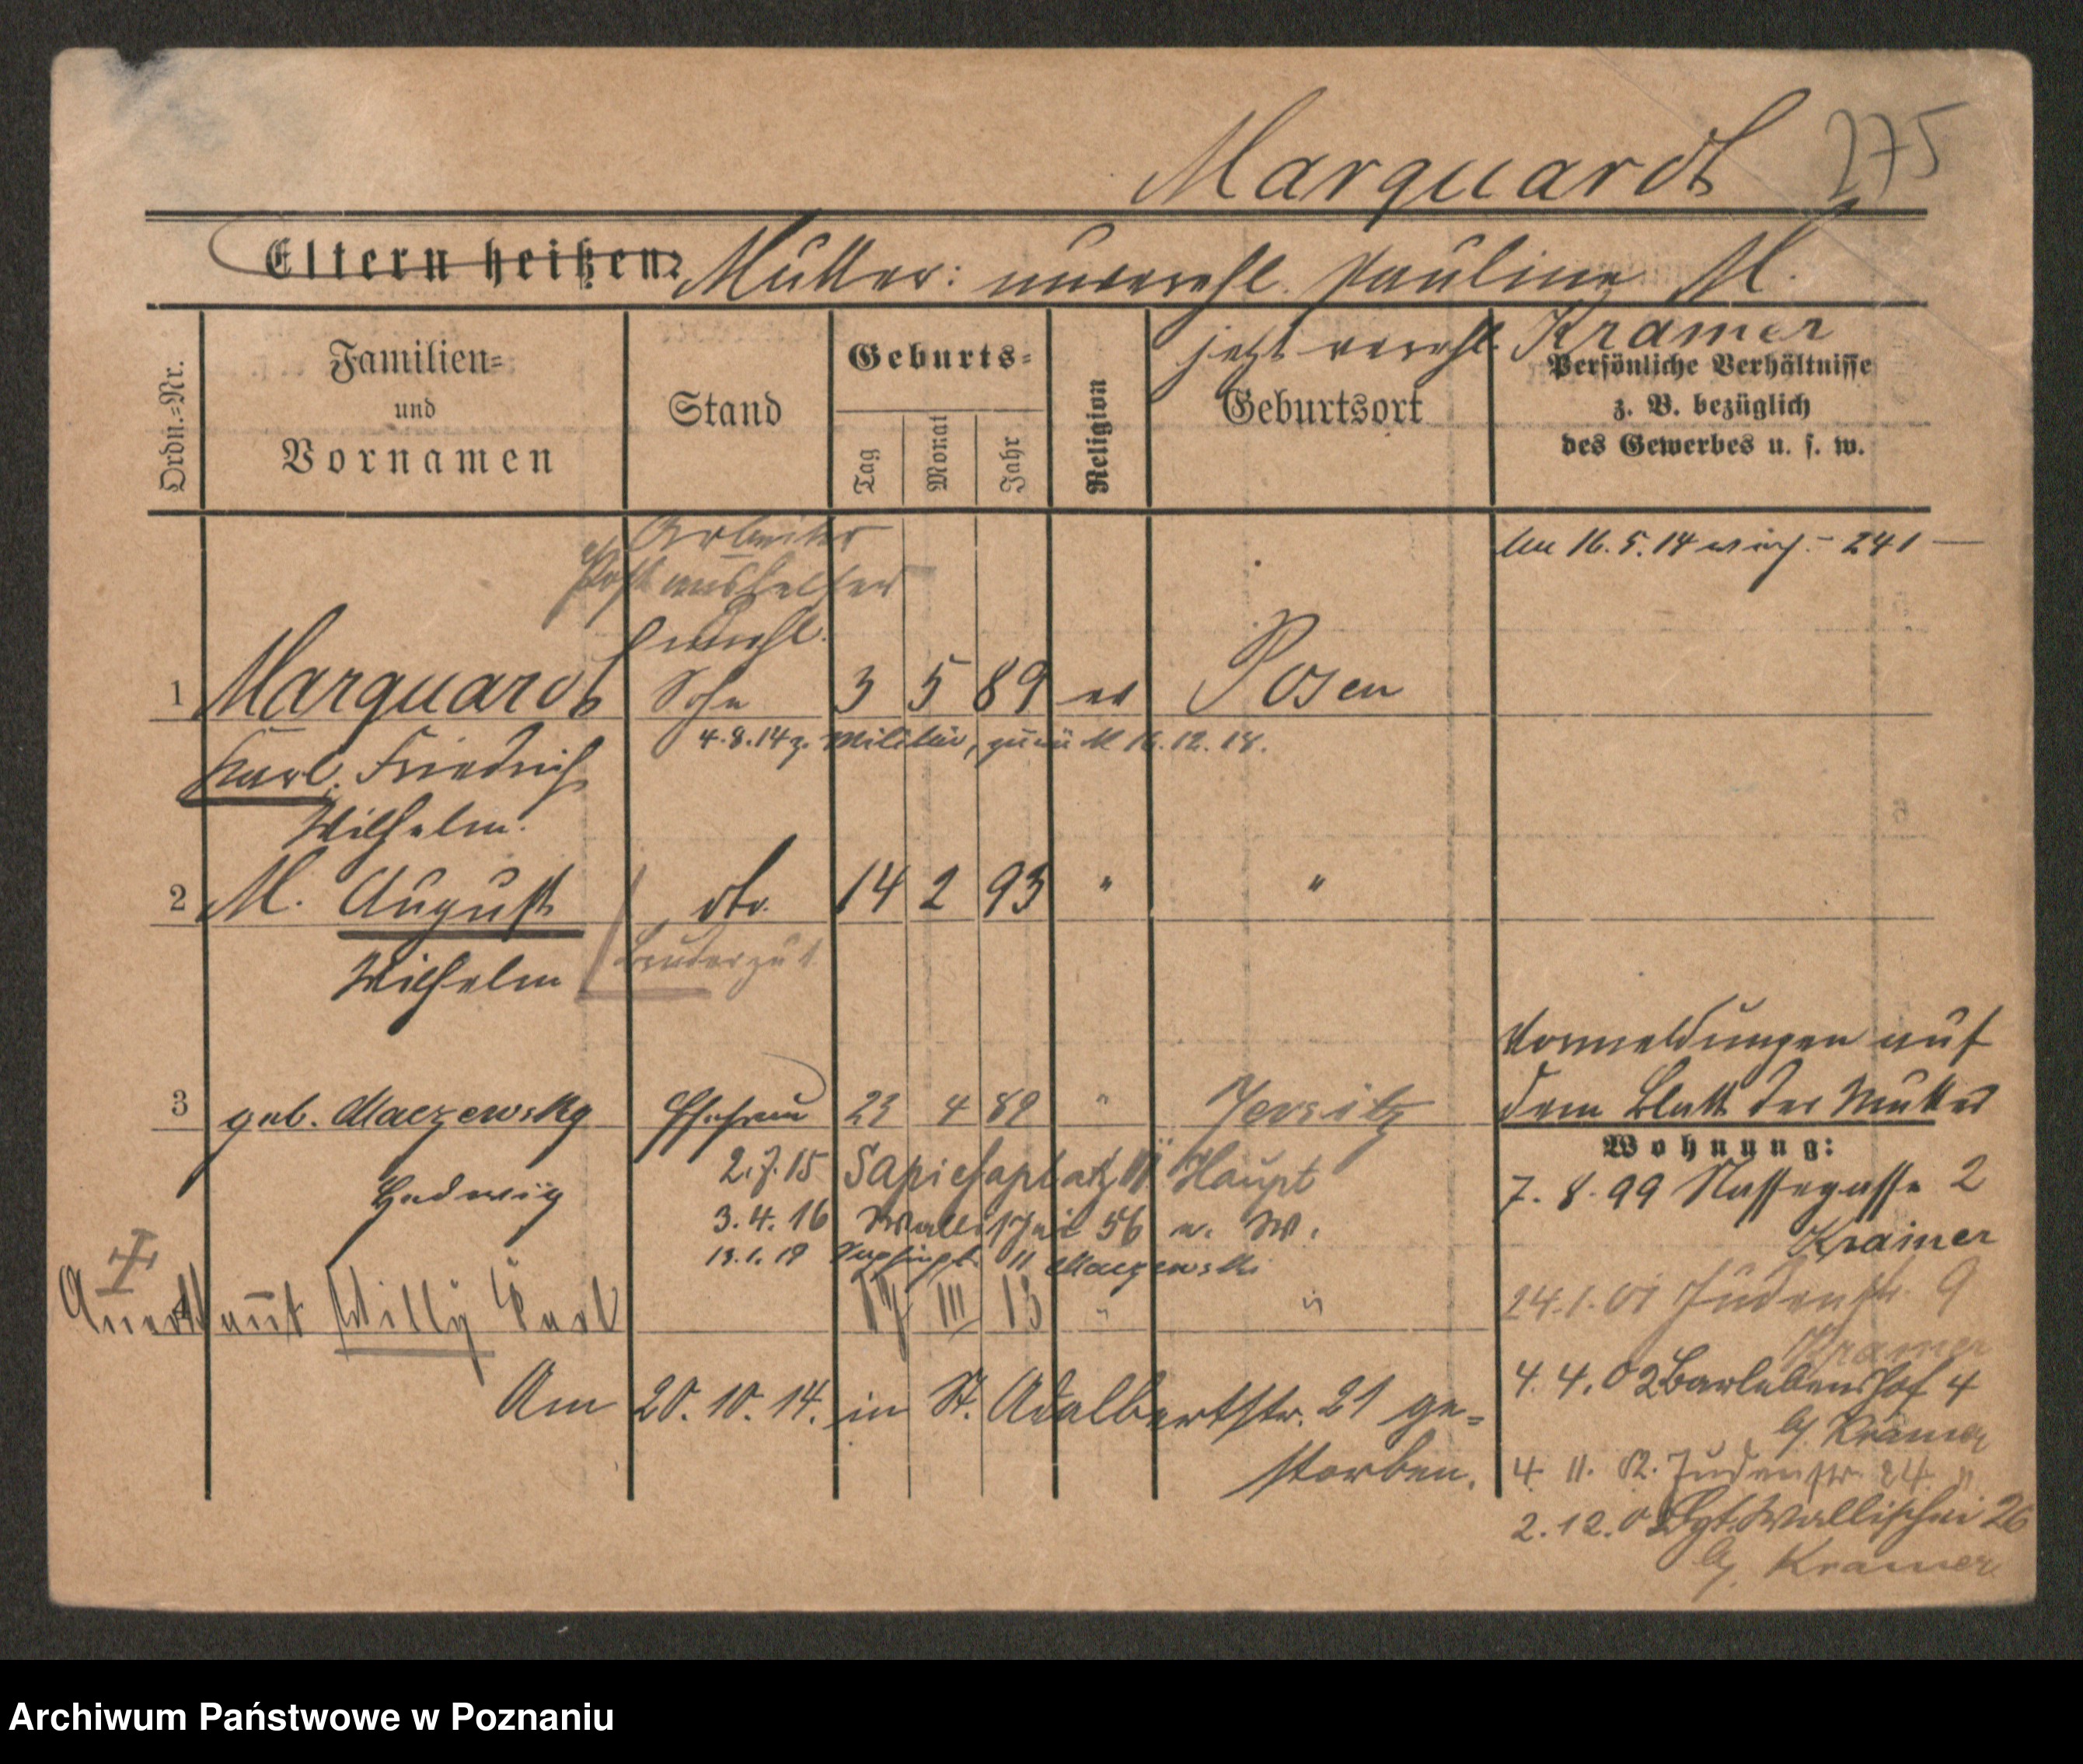 Marquardt 275
Eltern heißen: Mutter: unverehl. Pauline M.
jetzt verehl. Kramer
Ordn.=Nr.
Familien=
und
Vornamen
Stand
Geburts=
Tag
Monat
Jahr
Religion
Geburtsort
Persönliche Verhältnisse
z. B. bezüglich
des Gewerbes u. s. w.
Arbeiter
16. 5. 14 241
Postaushelfer
unehl.
1 Marquardt Sohn 3 5 89 ev Posen
4.8.14 z. Militär, zurück 12. 18.
Karl Friedrich
Wilhelm.
2 M. August dto. 14 2 93 " "
Wilhelm
Vormeldungen auf
dem Blatt der Mutter
3 geb. Maczewsky Ehefrau 23 4 89 " Jersitz
Wohnung:
2.7.15 Sapiehaplatz Haupt
7. 8. 99 Nassegasse 2
Hedwig
3. 4. 16 Wallischei 56 b. W.
Kramer
13. 1. 19 11 Maczewski
24. 1. 01 Judenstr. 9
Willy Karl 17 III 13 " "
Kramer
4. 4. 02 Barlebenshof 4
Am 20. 10. 14. in St. Adalbertstr. 21 ge=
b/ Kramer
storben.
4. 11. 02. Judenstr. 24
2. 12. 0 Wallischei 26
b/ Kramer
Archiwum Państwowe w Poznaniu